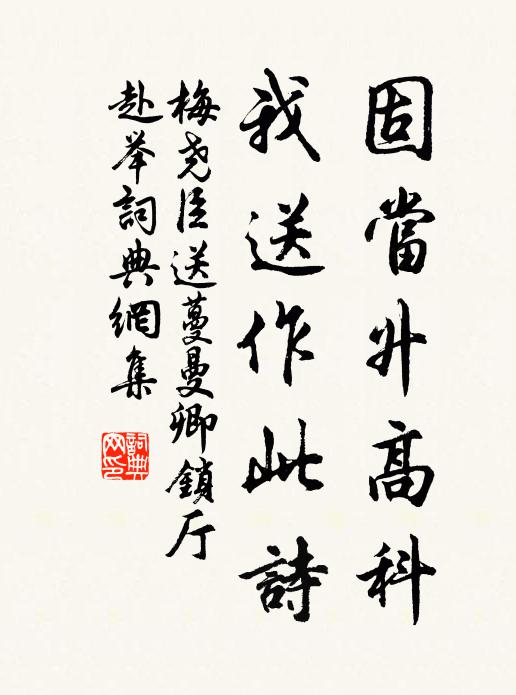 固當升高科
我送作此詩
梅尧臣送蔓曼卿鎖厅
赴举詞典網集
詞典网印